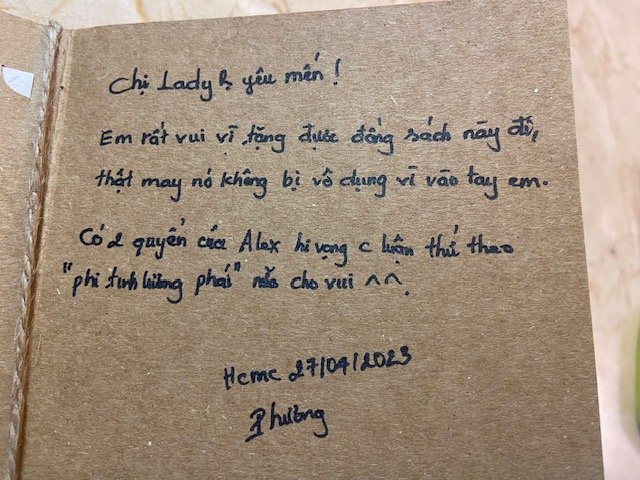 Chị Lady B yêu mến !
Em rất vui vì tặng được đống sách này đi,
thật may nó không bị vô dụng vì vào tay em.
Có 2 quyển của Alex hi vọng c luận thử theo
"phi tinh lường phái" nào cho vui ^^.
Hcmc 27/04/2023
Phương